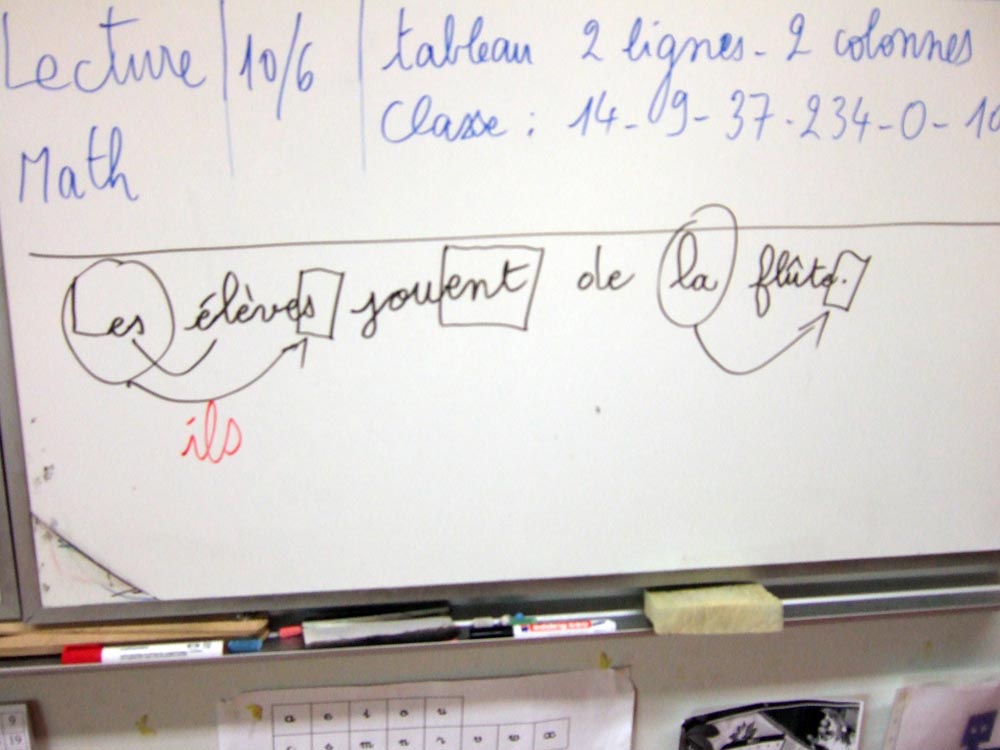 Lecture 10/6 tableau 2 lignes - 2 colonnes
Classe : 14 - 09 - 37 - 234 - 0 - 10
Math
Les élèves jouent de la flûte.
ils
a e i o u
9
19